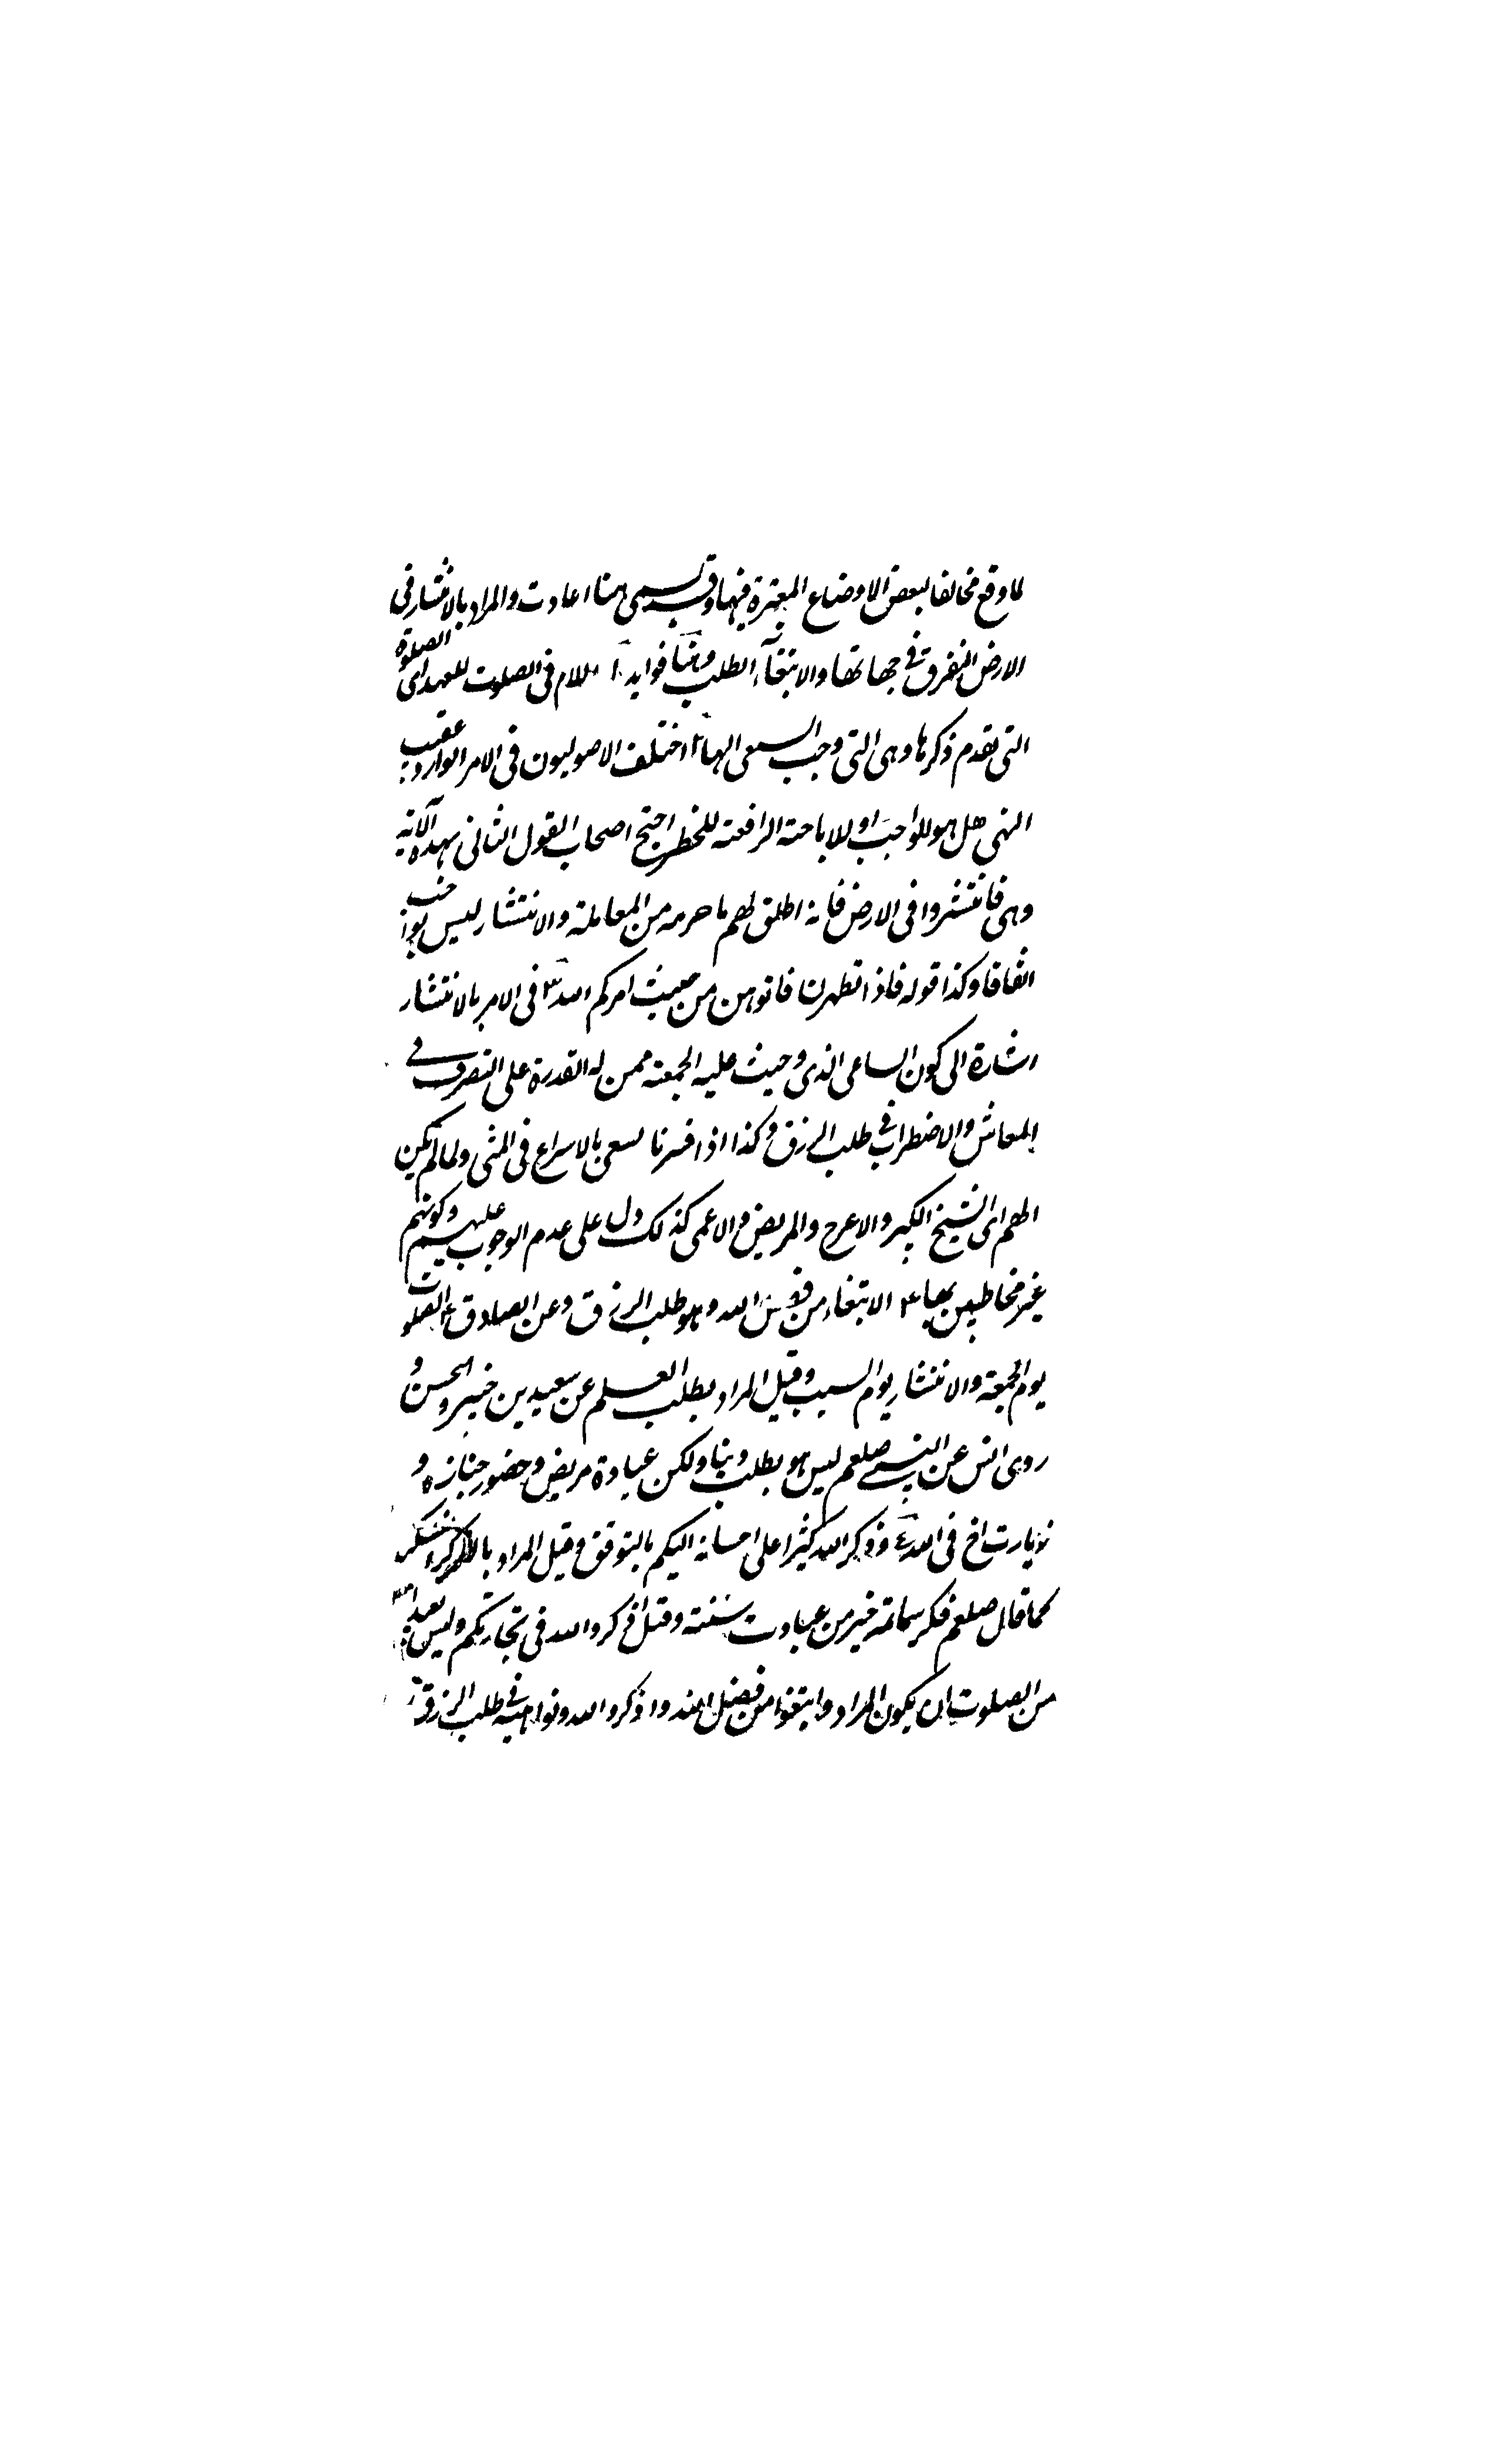 لما وقع مخالفا لبعض الاوضاع المعتبرة فيها وقد يسمى هنا اعادت والمراد بالانتشار فى
الارض التفرق فى جهاتها والابتغاء الطلب وهنا فوايد ا اللام فى الصلوت للعهد اى الصلوة
التى تقدم ذكرها وهى التى وجب السعى اليها ٢ اختلف الاصوليون فى الامر الوارد عقيب
النهى هل هو للواجب او للاباحة الرافعة للحظر احتج اصحاب القول الثانى بهذه الآية
وهى فانتشروا فى الارض فانه اطلق لهم ما حرمه من المعاملة والانتشار ليس بواجب
اتفاقا وكذا قوله فاذا تطهرن فاتوهن من حيث امركم الله ٣ فى الامر بالانتشار
اشارة الى كون الساعى الذى وجبت عليه الجمعة ممن له القدرة على التصرف فى
المعاش والاضطراب فى طلب الرزق وكذا اذا فسرنا السعى بالاسراع فى المشى ولما لم يكن
الهم اى الشيخ الكبير والاعرج والمريض والاعمى كذلك دل على عدم الوجوب عليهم وكونهم
غير مخاطبين بها ٣ الابتغاء من فضل الله وهو طلب الرزق وعن الصادق ع الصلوت
يوم الجمعة والانتشار يوم السبت وقيل المراد بطلب العلم عن سعيد بن جبير والحسن و
روى انس عن النبى صلعم ليس هو بطلب دنيا ولكن عيادة مريض وحضور جنازه و
زيارت اخ فى الله ٤ وذكر الله كثيرا على احسانه اليكم بالتوفق وقيل المراد بالذكر الفكر
كما قال صلعم فكر ساعة خير من عبادت سنة وقيل اذكروا الله فى تجارتكم وليس بعيدا
من الصلوت ان يكون المراد وابتغوا من فضل الله واذكروا الله ونواهيه فى طلب الرزق